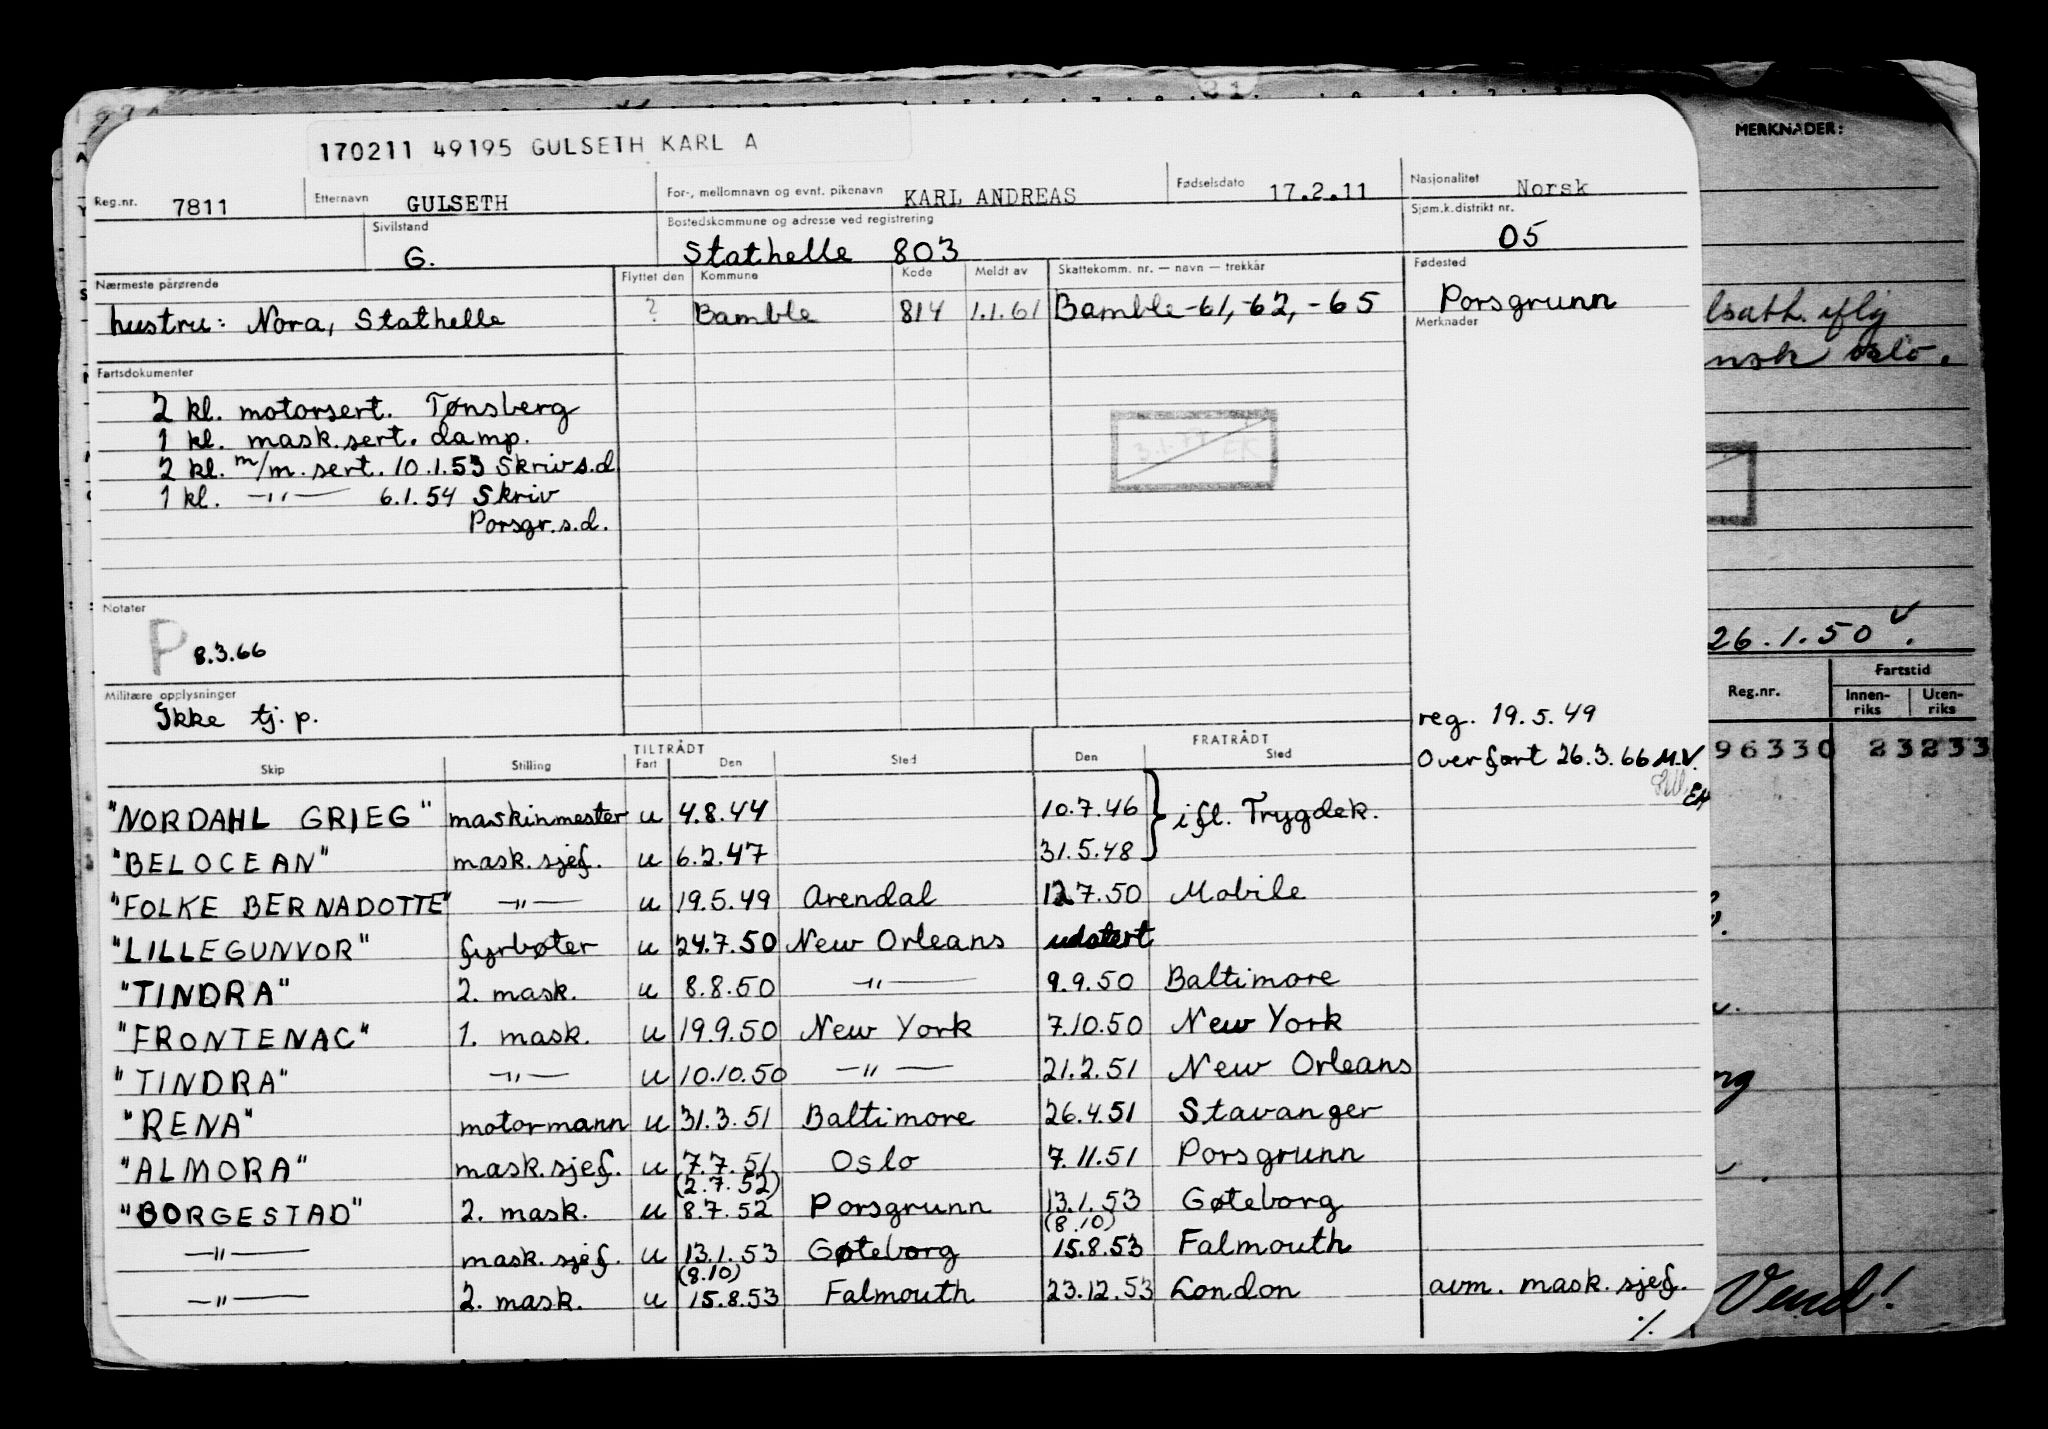 170211 49195 GULSETH KARL A
Reg.nr. 7811 Etternavn GULSETH For-, mellomnavn og evnt. pikenavn KARL ANDREAS Fødselsdato 17.2.11 Nasjonalitet Norsk
Sivilstand G. Bostedskommune og adresse ved registrering Stathelle 803 Sjøm.k.distrikt nr. 05
Nærmeste pårørende Flyttet den Kommune Kode Meldt av Skattekomm. nr. — navn — trekkår Fødested
hustru: Nora, Stathelle ? Bamble 814 1.1.61 Bamble -61, -62, -65 Porsgrunn
Merknader
Fartsdokumenter
2 kl. motorsert. Tønsberg
1 kl. mask.sert. damp.
2 kl. m/m. sert. 10.1.53 Skriv s.d
1 kl. —"— 6.1.54 Skriv
Porsgr. s.d.
EK
Notater
P 8.3.66
Militære opplysninger
Ikke tj. p.
reg. 19.5.49
Overført 26.3.66 M.V.
EH
TILTRÅDT FRATRÅDT
Skip Stilling Fart Den Sted Den Sted
"NORDAHL GRIEG" maskinmester u 4.8.44 10.7.46 } ifl. Trygdek.
"BELOCEAN" mask.sjef. u 6.2.47 31.5.48
"FOLKE BERNADOTTE" —"— u 19.5.49 Arendal 12.7.50 Mobile
"LILLEGUNVOR" fyrbøter u 24.7.50 New Orleans udatert
"TINDRA" 2. mask. u 8.8.50 —"— 9.9.50 Baltimore
"FRONTENAC" 1. mask. u 19.9.50 New York 7.10.50 New York
"TINDRA" —"— u 10.10.50 —"— 21.2.51 New Orleans
"RENA" motormann u 31.3.51 Baltimore 26.4.51 Stavanger
"ALMORA" mask.sjef. u 7.7.51 Oslo 7.11.51 Porsgrunn
(2.7.52)
"BORGESTAD" 2. mask. u 8.7.52 Porsgrunn 13.1.53 Gøteborg
(8.10)
—"— mask.sjef. u 13.1.53 Gøteborg 15.8.53 Falmouth
(8.10)
—"— 2. mask. u 15.8.53 Falmouth 23.12.53 London avm. mask.sjef.
./.
MERKNADER:
oslo.
26.1.50 v.
Reg.nr. Fartstid
Innen-riks Uten-riks
96330 23233
Vend!